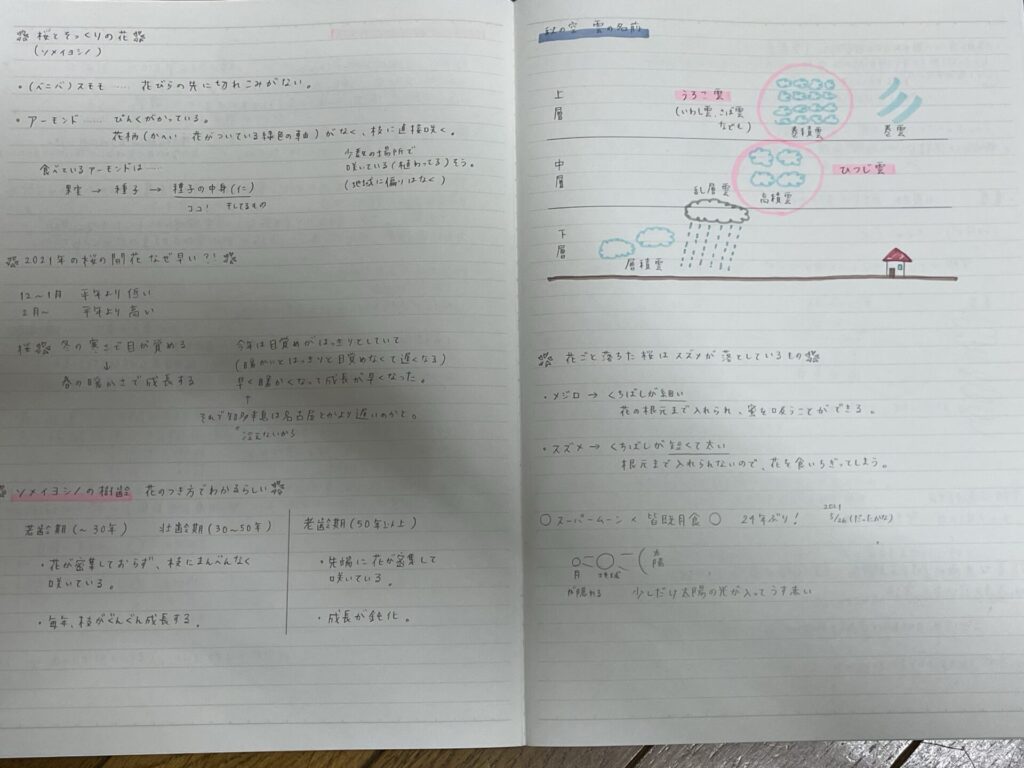 桜とそっくりの花
(ソメイヨシノ)
・(ベニバ)スモモ …… 花びらの先に切れこみがない。
・アーモンド …… ぴんくがかっている。
花柄(かへい 花がついている緑色の軸)がなく、枝に直接咲く。
食べているアーモンドは……
果実 → 種子 → 種子の中身(仁)
ココ!
少数の場所で
咲いている(植わってる)そう。
(地域に偏りはなく)
2021年の桜の開花 なぜ早い?!
12〜1月 平年より低い
2月〜 平年より高い
桜 冬の寒さで目が覚める
↓
春の暖かさで成長する
今年は目覚めがはっきりとしていて
(暖かいとはっきりと目覚めなくて遅くなる)
早く暖かくなって成長が早くなった。
↑
それで知多半島は名古屋とかより遅いのかと。
冷えないから
ソメイヨシノの樹齢 花のつき方でわかるらしい
若齢期(〜30年) 壮齢期(30〜50年)
・花が密集しておらず、枝にまんべんなく
咲いている。
・毎年、枝がぐんぐん成長する。
老齢期(50年以上)
・先端に花が密集して
咲いている。
・成長が鈍化。
秋の空 雲の名前
上層
うろこ雲
(いわし雲、さば雲
なども)
巻積雲
巻雲
中層
ひつじ雲
高積雲
乱層雲
下層
層積雲
花ごと落ちた桜はスズメが落としているもの
・メジロ → くちばしが細い
花の根元まで入れられ、蜜を吸うことができる。
・スズメ → くちばしが短くて太い
根元まで入れられないので、花を食いちぎってしまう。
○スーパームーン × 皆既月食○ 24年ぶり! 2021 5/26(だったかな)
月 地球 太陽
が隠れる 少しだけ太陽の光が入ってうす赤い